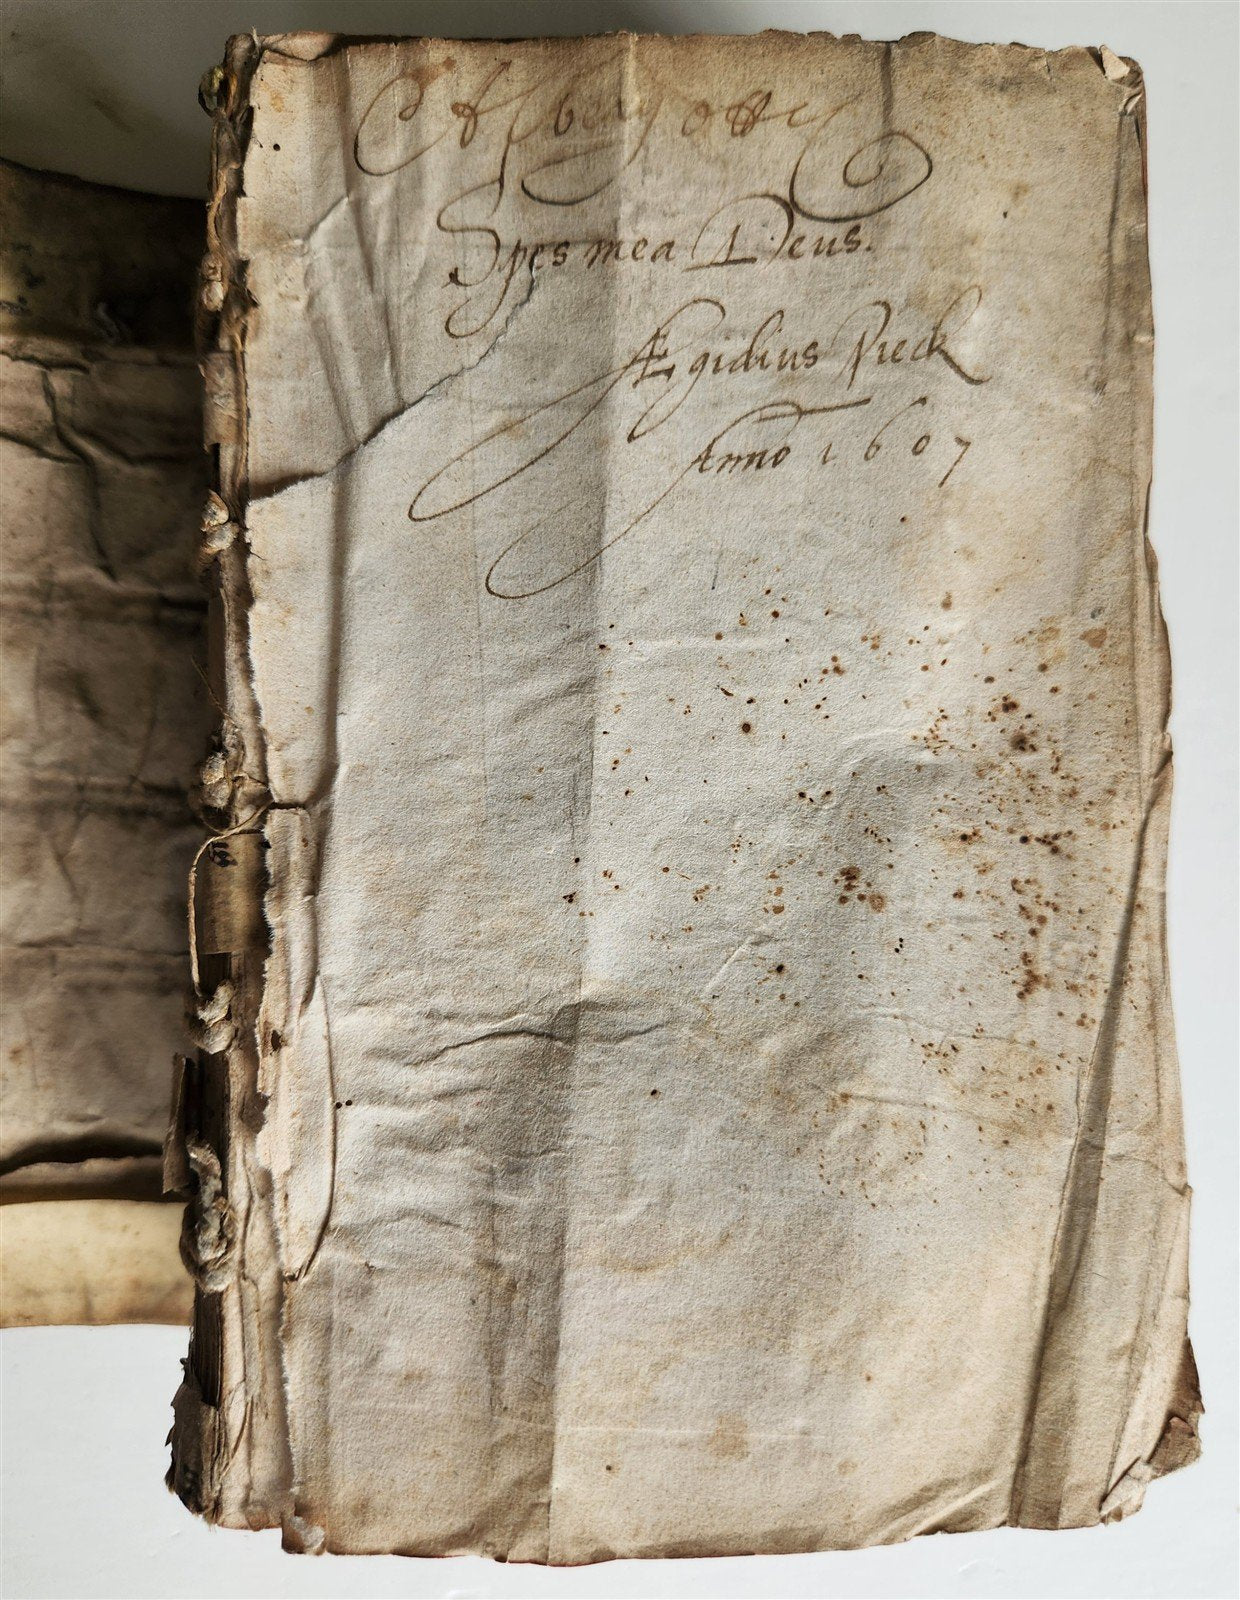 Spes mea Deus.
Ægidius Pieck
Anno 1607